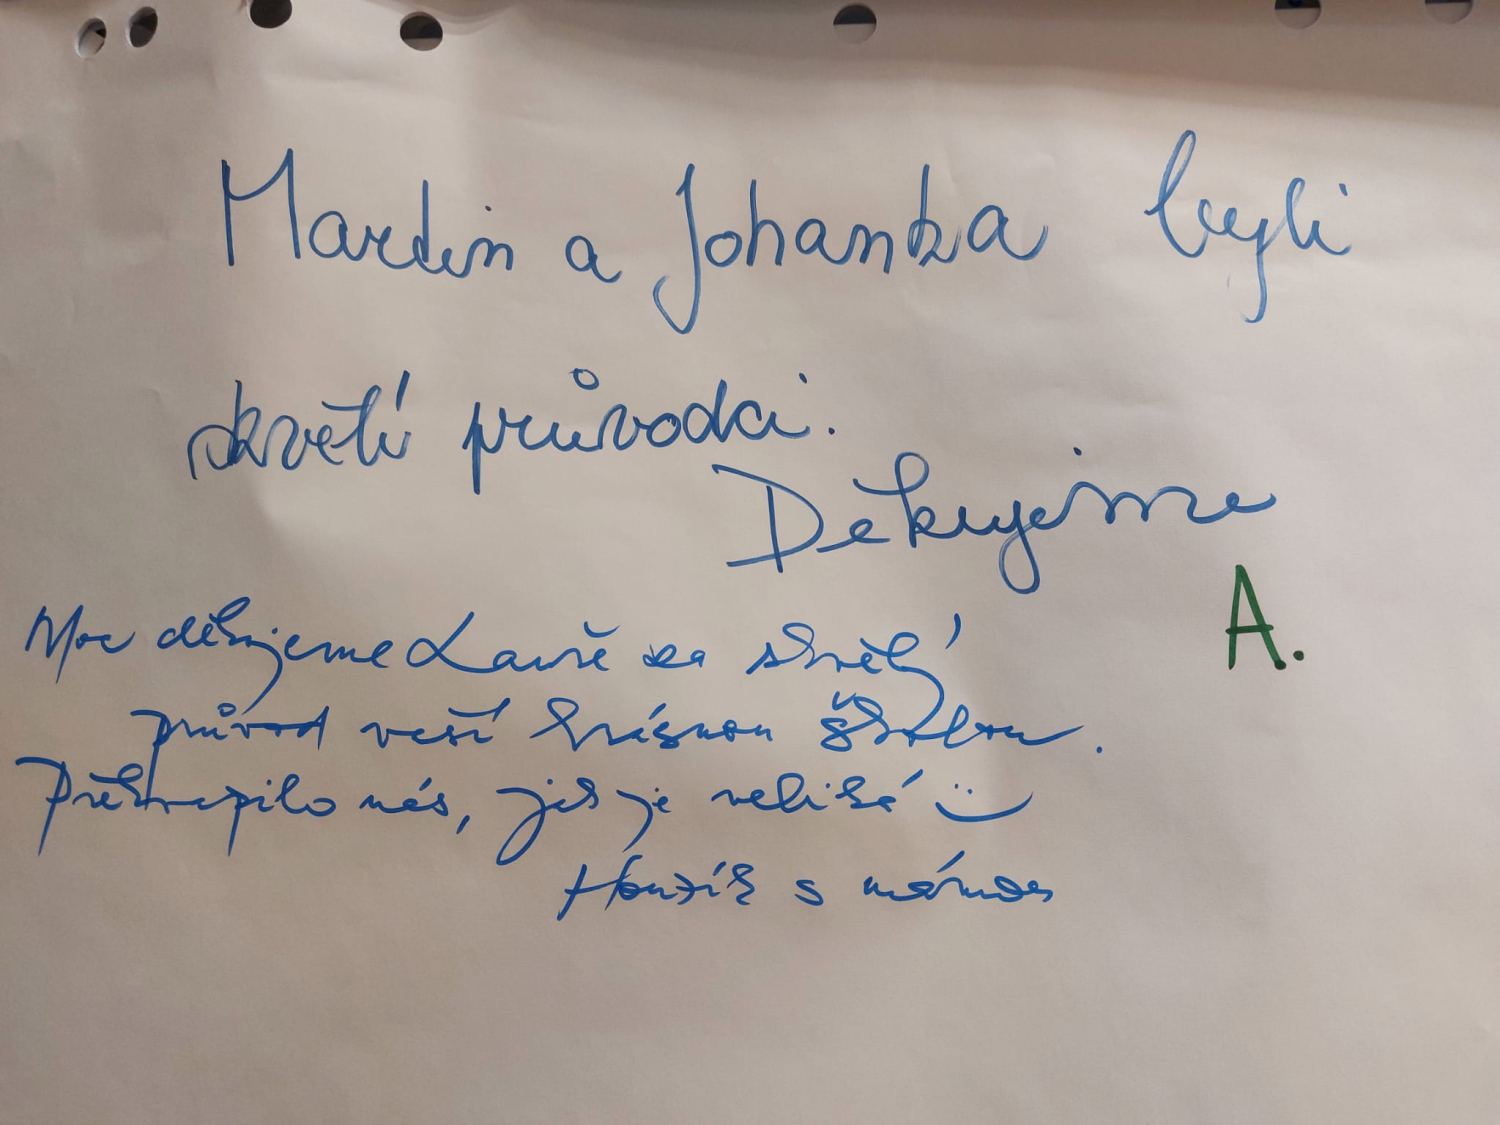 Martin a Johanka byli
skvělí průvodci.
Děkujeme
A.
Moc děkujeme Lauře za skvělý
průvod vaší krásnou školou.
Překvapilo nás, jak je veliká :)
Honzík s mámou